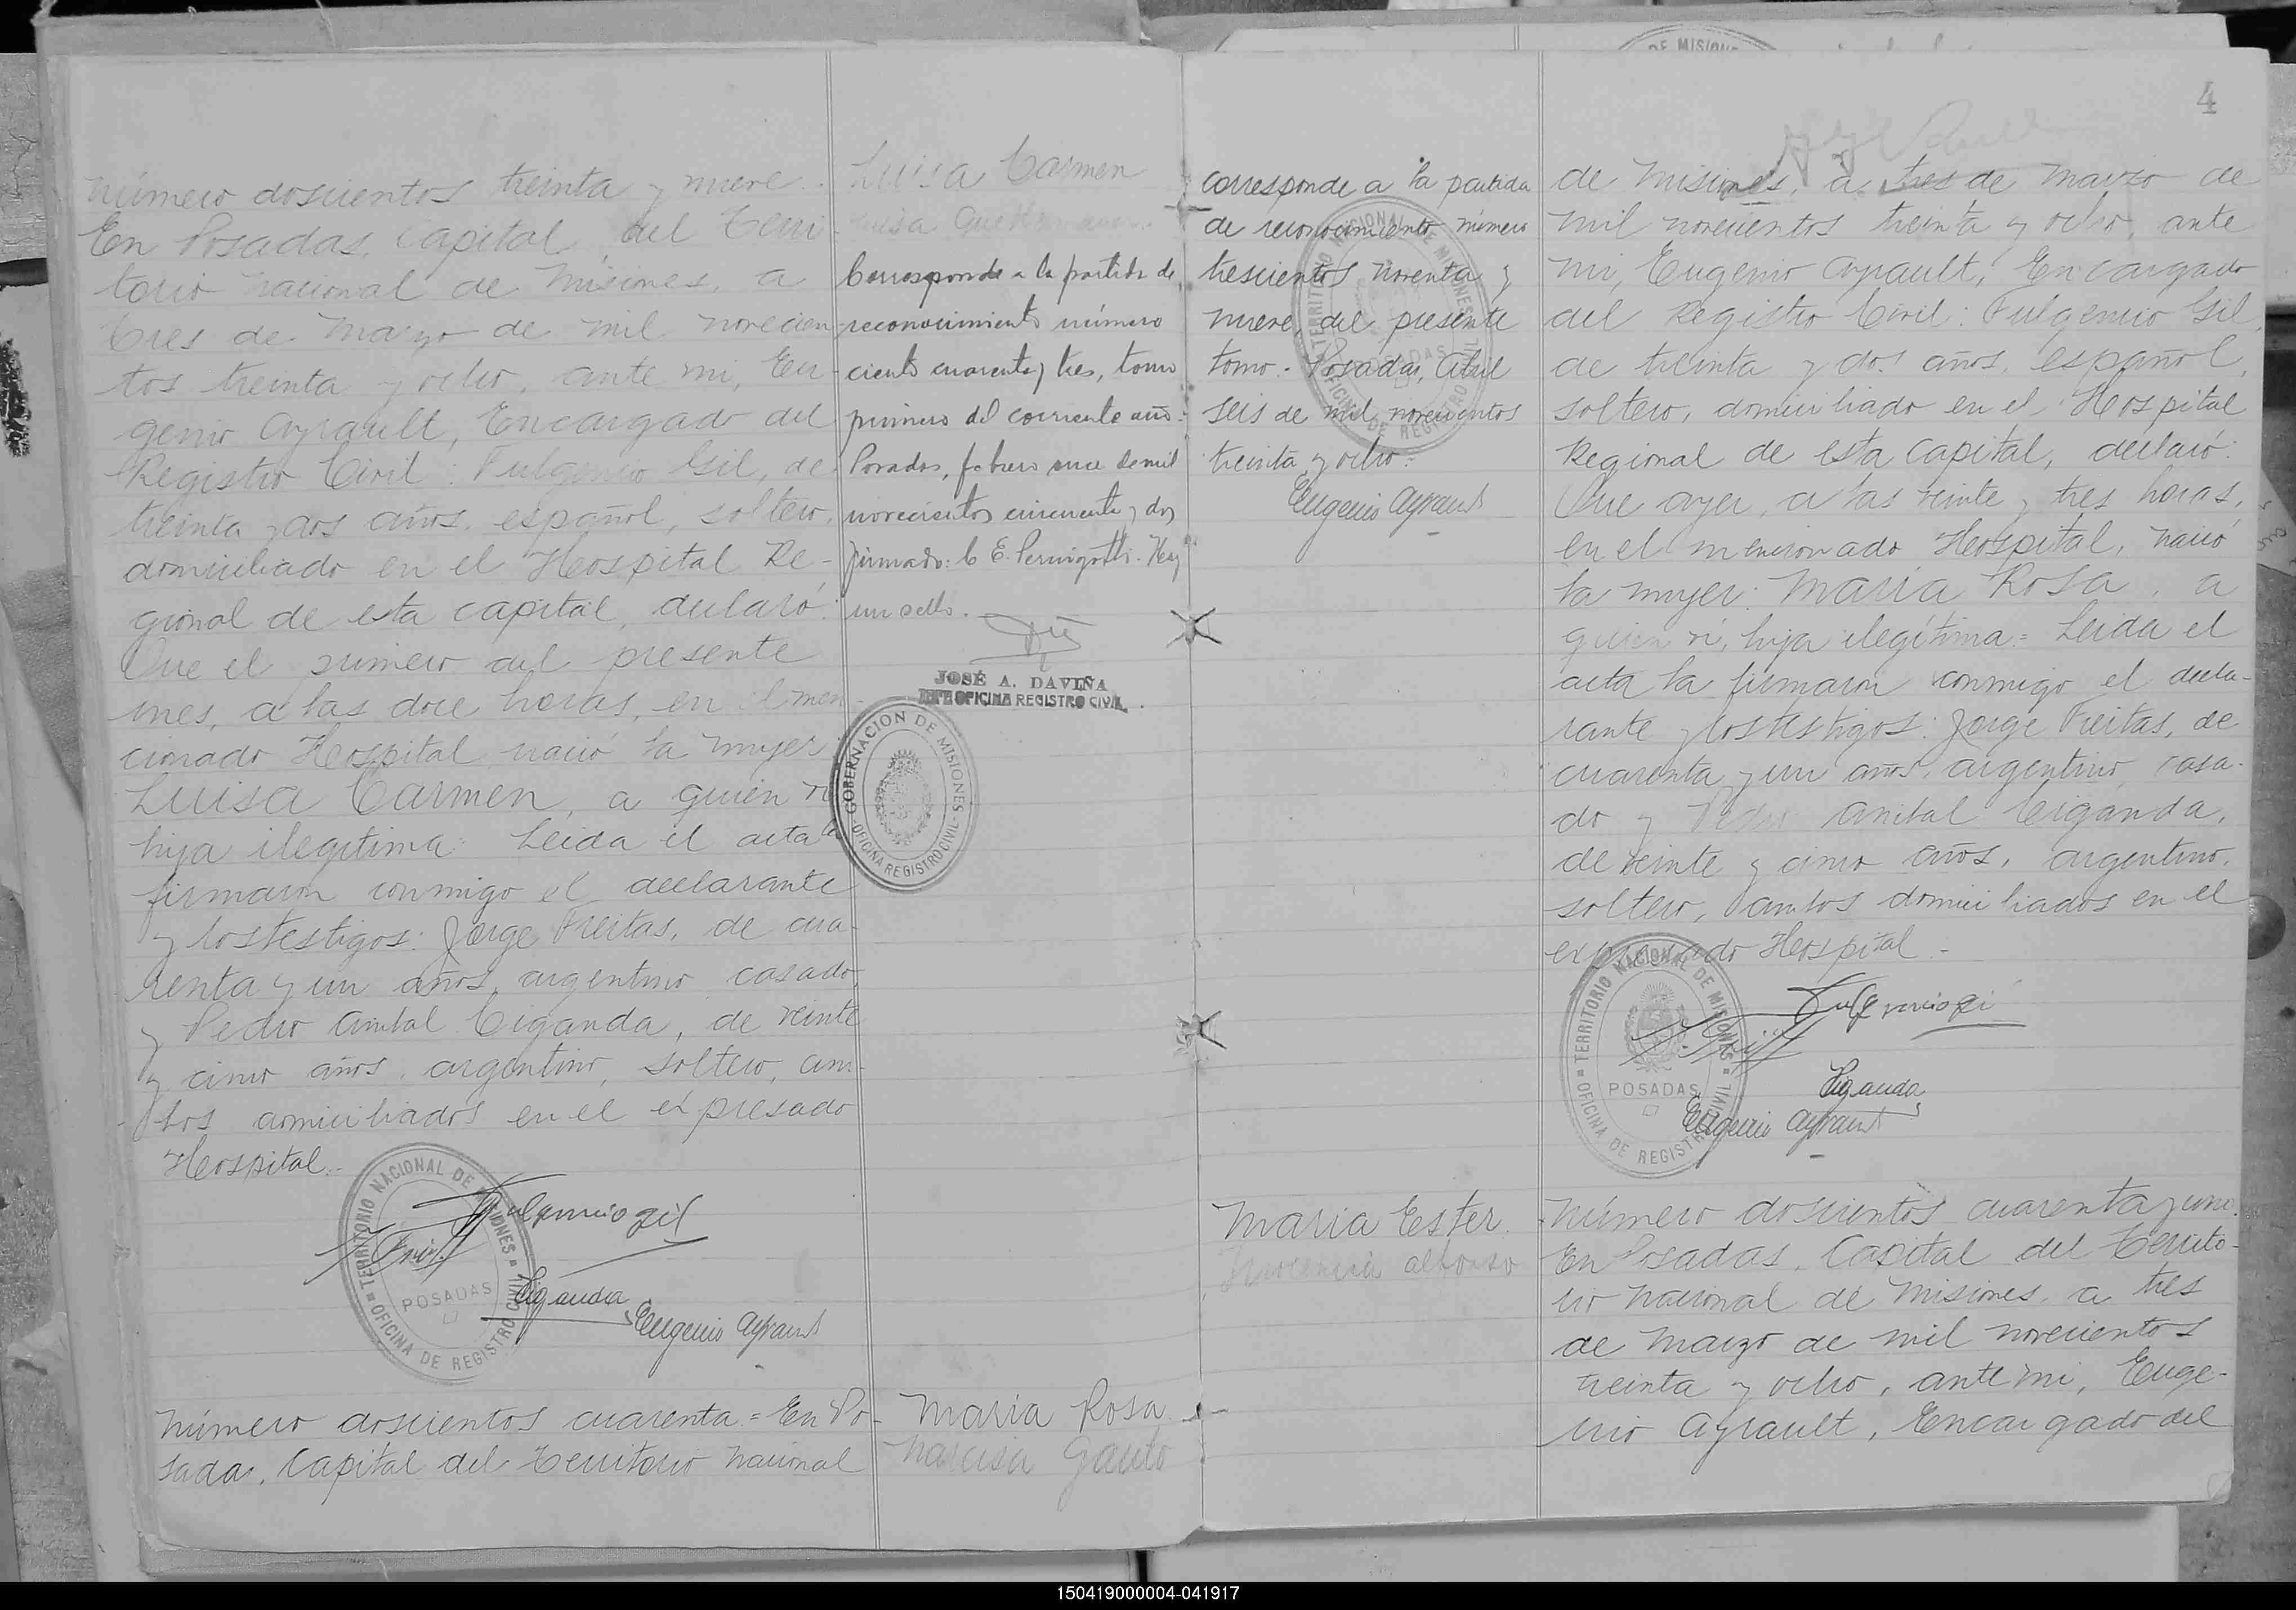 número doscientos treinta y nueve.
En Posadas, Capital del Terri-
torio nacional de Misiones, a
tres de Marzo de mil novecien
tos treinta y ocho, ante mi, Eu-
genio Ayrault, Encargado del
Registro Civil: Fulgencio Gil, de
treinta y dos años, español, soltero,
domiciliado en el Hospital Re-
gional de esta capital, declaró:
Que el primero del presente
mes, a las doce horas, en el men-
cionado Hospital, nació la mujer
Luisa Carmen, a quién ví
hija ilegítima: Leida el acta la
firmaron conmigo el declarante
y los testigos: Jorge Freitas, de cua-
renta y un años, argentino, casado,
y Pedro Anibal Ciganda, de veinte
y cinco años, argentino, soltero, am-
bos domiciliados en el expresado
Hospital.-
Fulgencio Gil
Ciganda
Eugenio Ayrault
TERRITORIO NACIONAL DE MISIONES
OFICINA DE REGISTRO CIVIL
POSADAS
número doscientos cuarenta = En Po-
sadas, Capital del Territorio nacional
Luisa Carmen
Corresponde a la partida de
reconocimiento número
ciento cuarenta y tres, tomo
primero del corriente año.-
Posadas, febrero once de mil
novecientos cincuenta y dos
firmado: C. E. Pernigotti. Hay
un sello.
JOSÉ A. DAVIÑA
JEFE OFICINA REGISTRO CIVIL
GOBERNACION DE MISIONES
OFICINA REGISTRO CIVIL
Maria Rosa
Narcisa Gauto
corresponde a la partida
de reconocimiento número
trescientos noventa y
nueve, del presente
tomo.- Posadas, Abril
seis de mil novecientos
treinta y ocho:
Eugenio Ayrault
TERRITORIO NACIONAL DE MISIONES
OFICINA DE REGISTRO CIVIL
POSADAS
Maria Ester.
alfonso
DE MISIONES
4
de Misiones, a tres de Marzo de
mil novecientos treinta y ocho, ante
mi, Eugenio Ayrault, Encargado
del Registro Civil: Fulgencio Gil,
de treinta y dos años, español,
soltero, domiciliado en el Hospital
Regional de esta capital, declaró:
Que ayer, a las veinte y tres horas,
en el mencionado Hospital, nació
la mujer: Maria Rosa, a
quien ví, hija ilegítima = Leida el
acta la firmaron conmigo el decla-
rante y los testigos: Jorge Freitas, de
cuarenta y un años, argentino, casa-
do y Pedro Anibal Ciganda,
de veinte y cinco años, argentino,
soltero, ambos domiciliados en el
expresado Hospital.-
Fulgencio Gil
Ciganda
Eugenio Ayrault
TERRITORIO NACIONAL DE MISIONES
OFICINA DE REGISTRO CIVIL
POSADAS
número doscientos cuarenta y uno.
En Posadas, Capital del Territo-
rio nacional de Misiones, a tres
de Marzo de mil novecientos
treinta y ocho, ante mi, Euge-
nio Ayrault, Encargado del
150419000004-041917